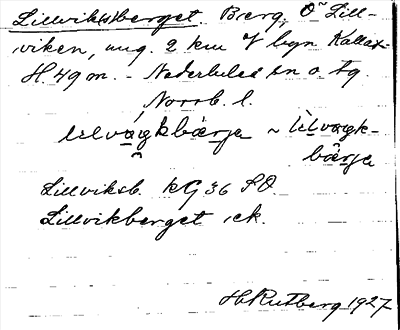 Lillvik(s)berget. Berg, O Lill-
viken, ung. 2 km V byn Kallax.
H 49 m. - Nederluleå sn o. tg.
Norrb. l.
lılvágkbärja ~ lìlvagk-
bärja
Lillviksb. kG 36 SO.
Lillvikberget ek.
H. Rutberg 1927